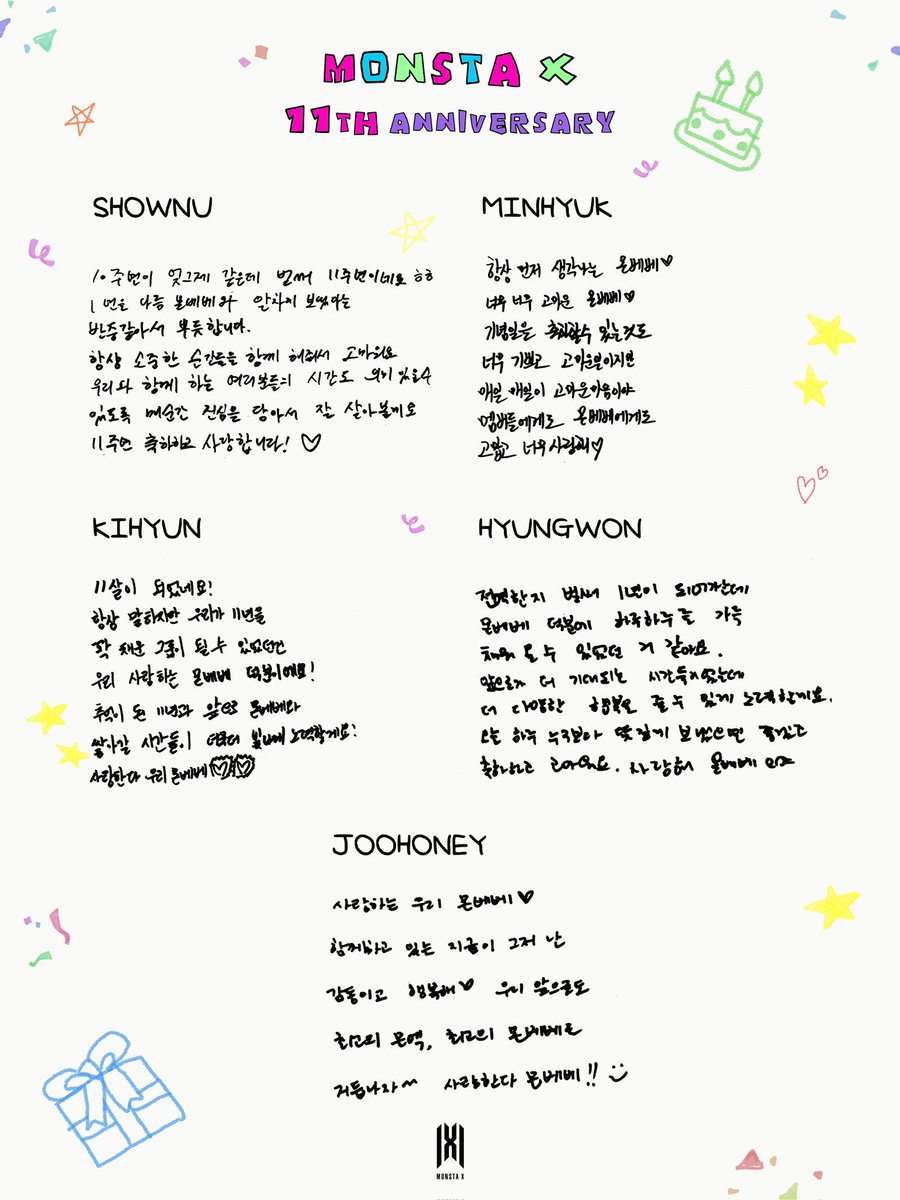 MONSTA X
11TH ANNIVERSARY
SHOWNU
10주년이 엊그제 같은데 벌써 11주년이네요 ㅎㅎ
1년을 다들 몬베베와 알차게 보냈다는
반증같아서 뿌듯합니다.
항상 소중한 순간들을 함께 해줘서 고마워요
우리와 함께 하는 여러분들의 시간도 의미 있을 수
있도록 매순간 진심을 담아서 잘 살아볼게요
11주년 축하하고 사랑합니다! ♡
MINHYUK
항상 먼저 생각나는 몬베베♡
너무 너무 고마운 몬베베♡
기념일을 축하할수 있는것도
너무 기쁘고 고마운일이지만
매일 매일이 고마운마음이야
멤버들에게도 몬베베에게도
고맙고 너무 사랑해♡
KIHYUN
11살이 되었네요!
항상 말하지만 우리가 11년을
꽉 채운 그룹이 될 수 있었던건
우리 사랑하는 몬베베 덕분이에요!
추억이 된 11년과 앞으로 몬베베와
쌓아갈 시간들이 더욱더 빛나게 노력할게요!
사랑한다 우리 몬베베♡♡
HYUNGWON
전역한지 벌써 1년이 되어가는데
몬베베 덕분에 하루하루를 가득
채워 올 수 있었던 거 같아요.
앞으로가 더 기대되는 시간들이었는데
더 다양한 행복을 줄 수 있게 노력할게요.
오늘 하루 누구보다 멋지게 보냈으면 좋겠고
축하하고 고마워요. 사랑해 몬베베
JOOHONEY
사랑하는 우리 몬베베♡
함께하고 있는 지금이 그저 난
감동이고 행복해♡ 우리 앞으로도
최고의 몬엑, 최고의 몬베베로
거듭나자~ 사랑한다 몬베베!!
MONSTA X